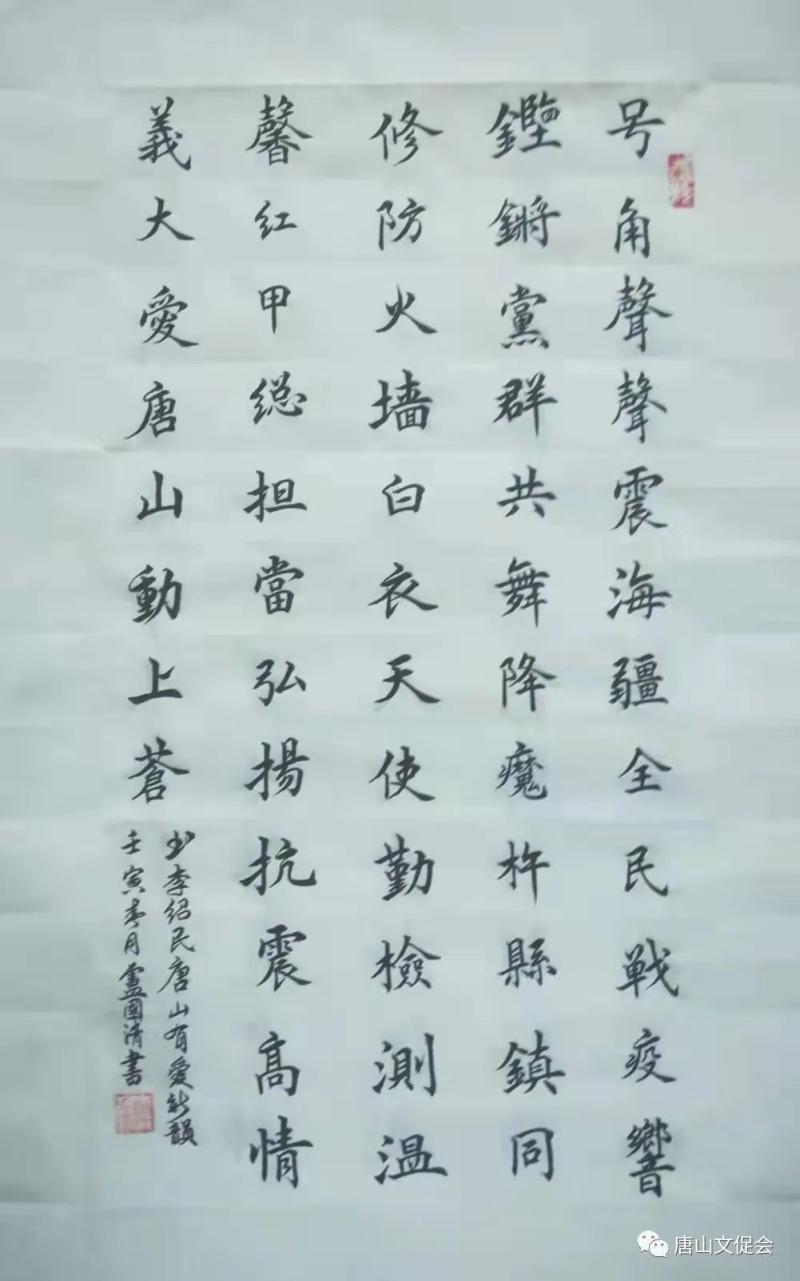 号角聲聲震海疆全民戦疫響
鏗鏘黨群共舞降魔杵縣鎮同
修防火墙白衣天使勤檢測温
馨红甲総担當弘揚抗震髙情
義大愛唐山動上蒼
书李绍民唐山有愛新韻
壬寅春月盧國清書
唐山文促会